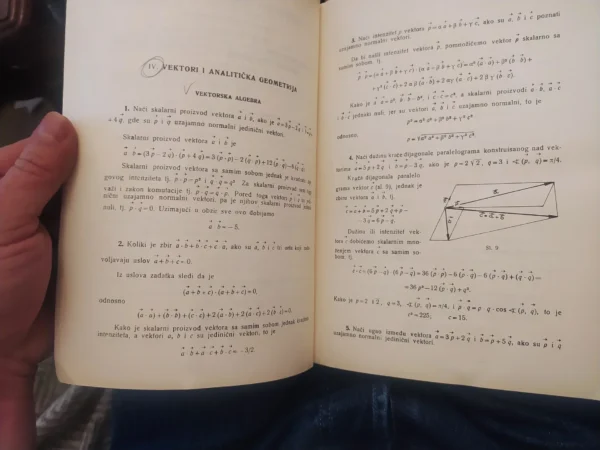 IV. VEKTORI I ANALITIČKA GEOMETRIJA
VEKTORSKA ALGEBRA
1. Naći skalarni proizvod vektora a i b, ako je a=3p−2q i b=p+
+4q, gde su p i q uzajamno normalni jedinični vektori.
Skalarni proizvod vektora a i b je
a·b=(3p−2q)·(p+4q)=3(p·p)−2(q·p)+12(p·q)−8(q·q).
Skalarni proizvod vektora sa samim sobom jednak je kvadratu nje-
govog intenziteta tj. p·p=p² i q·q=q². Za skalarni proizvod
važi i zakon komutacije tj. p·q=q·p. Pored toga vektori p i q
uzajamno normalni vektori, pa je njihov skalarni proizvod
nuli, tj. p·q=0. Uzimajući u obzir sve ovo dobijamo
a·b=−5.
2. Koliki je zbir a·b+b·c+c·a, ako su a, b i c
voljavaju uslov a+b+c=0.
Iz uslova zadatka sledi da je
(a+b+c)·(a+b+c)=0,
odnosno
(a·a)+(b·b)+(c·c)+2(a·b)+2(a·c)+2(b·c)=0.
Kako je skalarni proizvod vektora sa samim sobom jednak kvadratu
intenziteta, a vektori a, b i c su jedinični vektori, to je
a·b+a·c+b·c=−3/2.
3. Naći intenzitet p vektora p=αa+βb+γc, ako su a, b i c poznati
uzajamno normalni vektori.
Da bi našli intenzitet vektora p, pomnožićemo vektor p skalarno sa
samim sobom, tj.
p·p=(αa+βb+γc)·(αa+βb+γc)=α²(a·a)+β²(b·b)+
+γ²(c·c)+2αβ(a·b)+2αγ(a·c)+2βγ(b·c).
Kako je a·a=a², b·b=b², i c·c=c², a skalarni proizvodi a·b, a·c
i b·c jednaki nuli, jer su vektori a, b i c uzajamno normalni, to je
p²=α²a²+β²b²+γ²c²
odnosno,
p=√α²a²+β²b²+γ²c².
4. Naći dužinu kraće dijagonale paralelograma konstruisanog nad vek-
torima a=5p+2q i b=p−3q, ako je p=2√2, q=3 i ∢(p, q)=π/4.
Kraća dijagonala paralelo-
grama vektor c (sl. 9), jednak je
zbiru vektora a i b, tj.
c=a+b=5p+2q+p−
−3q=6p−q.
Dužinu ili intenzitet vek-
tora c dobićemo skalarnim mno-
ženjem vektora c sa samim so-
bom tj.
Sl. 9
c·c=(6p−q)·(6p−q)=36(p·p)−6(p·q)−6(p·q)+(q·q)=
=36p²−12(p·q)+q².
Kako je p=2√2, q=3, ∢(p, q)=π/4, i p·q=p·q·cos∢(p, q), to je
c²=225, c=15.
5. Naći ugao između vektora a=3p+2q i b=p+5q, ako su p i q
uzajamno normalni, jedinični vektori.